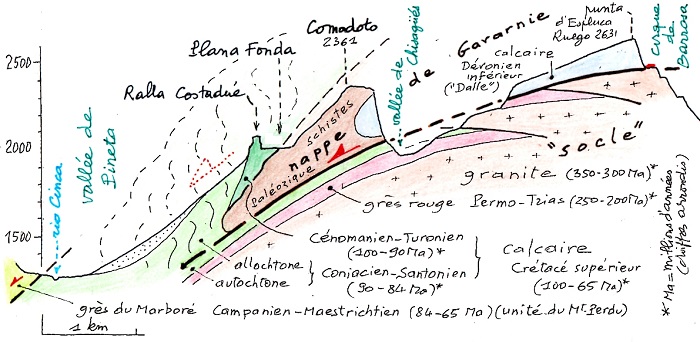 Comodoto
2361
Plana Fonda
Ralla Costadue
2500
2000
1500
vallée de
Pineta
rio Cinca
vallée de
Chisagüés
de Gavarnie
punta
d'Espluca
Ruego 2631
Cirque
de
Barrosa
calcaire
Dévonien
inférieur
("Dalle")
schistes
nappe
Paléozoïque
"socle"
granite (350-300 Ma)*
grès rouge Permo-Trias (250-200 Ma)*
Cénomanien-Turonien
(100-90 Ma)*
allochtone
autochtone
Coniacien-Santonien
(90-84 Ma)*
Calcaire
Crétacé supérieur
(100-65 Ma)*
* Ma = millions d'années
(chiffres arrondis)
grès du Marboré Campanien-Maestrichtien (84-65 Ma) (unité du Mt Perdu)
1 km